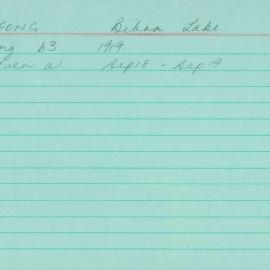 FONG. Bibra Lake.
ng b3 1919
as Sep18 - Sep19